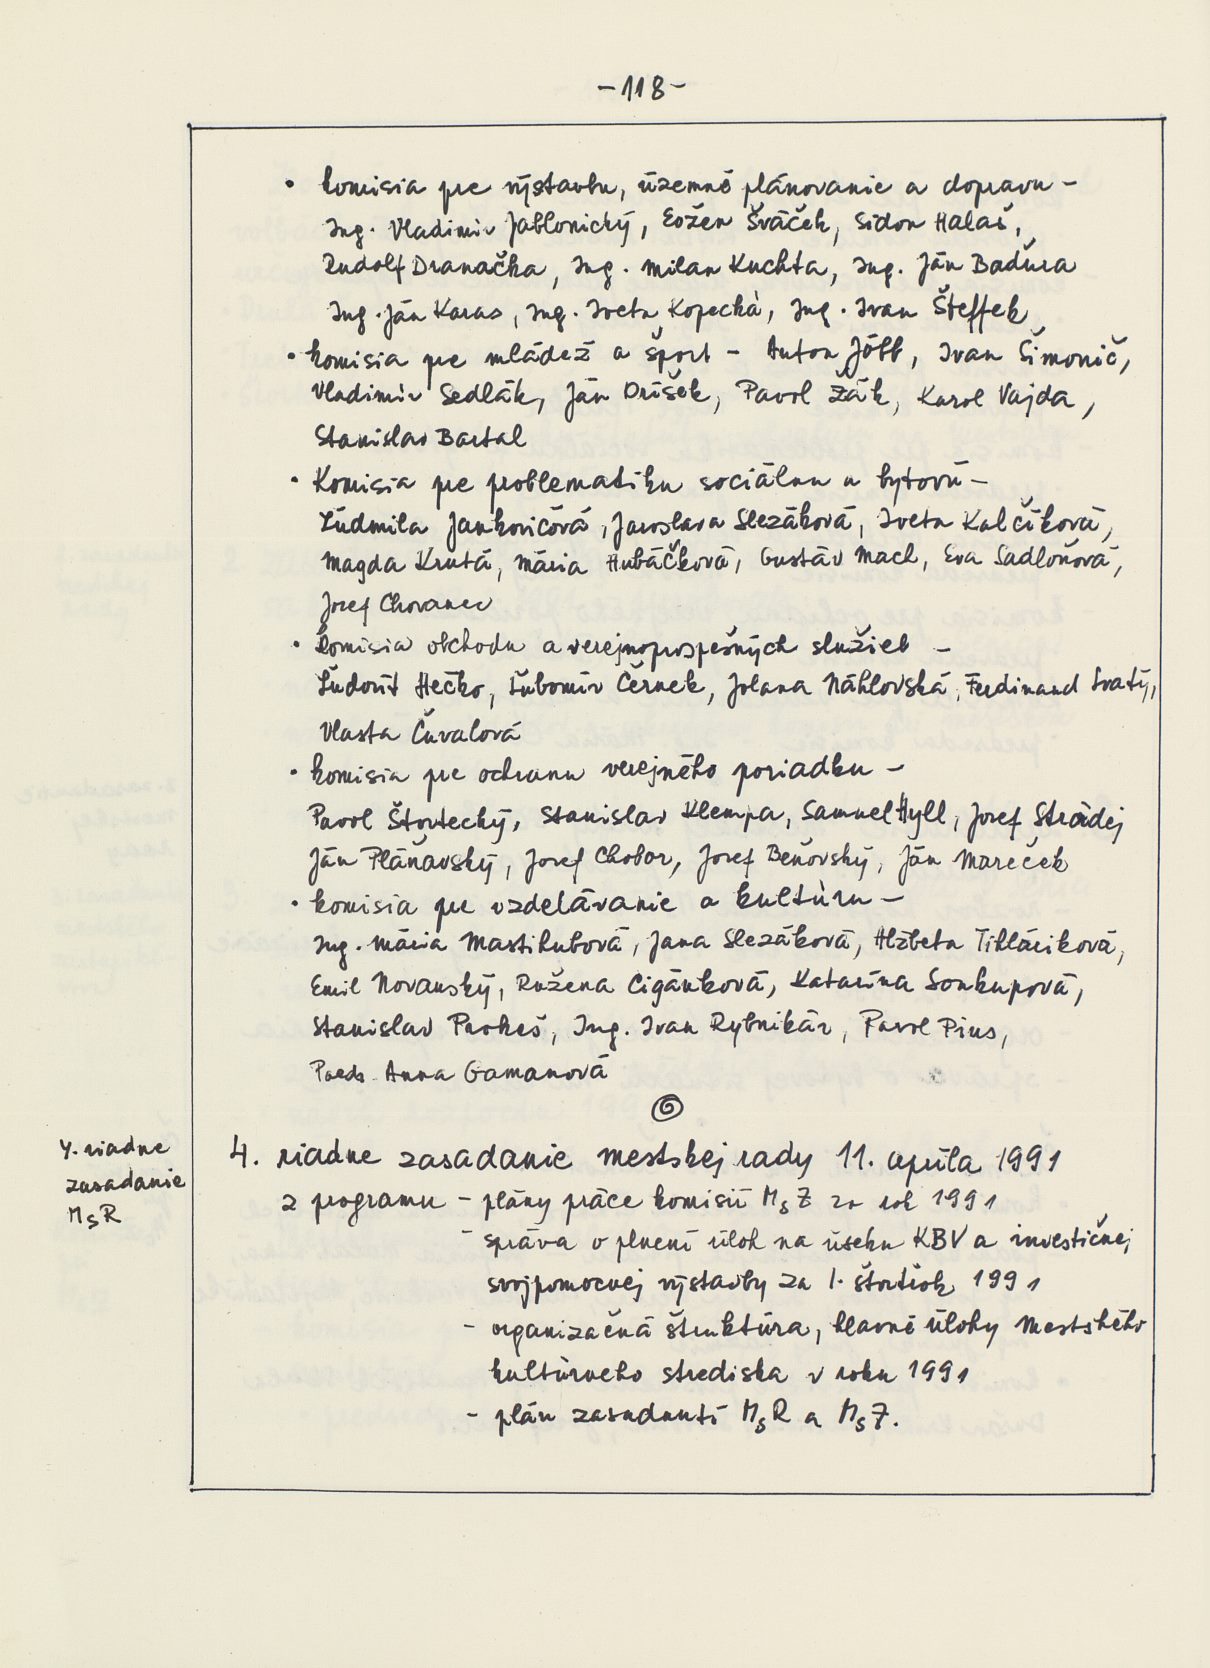 -118-
• komisia pre výstavbu, územné plánovanie a dopravu -
Ing. Vladimír Jablonický, Eožen Šváček, Sidon Halaš,
Rudolf Dranačka, Ing. Milan Kuchta, Ing. Ján Badura
Ing. Ján Karas, Ing. Iveta Kopecká, Ing. Ivan Šteffek
• komisia pre mládež a šport - Anton Jobb, Ivan Šimonič,
Vladimír Sedlák, Ján Drišek, Pavol Žák, Karol Vajda,
Stanislav Bartal
• Komisia pre problematiku sociálnu a bytovú -
Ľudmila Jankovičová, Jaroslava Slezáková, Iveta Kalčíková,
Magda Krutá, Mária Hubáčková, Gustáv Mach, Eva Sadloňová,
Jozef Chovanec
• Komisia obchodu a verejnoprospešných služieb -
Ľudovít Hečko, Ľubomír Černek, Jolana Náhlovská, Ferdinand Svatý,
Vlasta Čuvalová
• komisia pre ochranu verejného poriadku -
Pavol Štvrtecký, Stanislav Klempa, Samuel Hyll, Jozef Strádej
Ján Pláňavský, Jozef Chobor, Jozef Beňovský, Ján Mareček
• komisia pre vzdelávanie a kultúru -
Ing. Mária Mastihubová, Jana Slezáková, Alžbeta Tihláriková,
Emil Novanský, Ružena Cigánková, Katarína Soukupová,
Stanislav Prokeš, Ing. Ivan Rybnikár, Pavol Pius,
Paeds. Anna Gamanová
4. riadne
zasadanie
MsR
4. riadne zasadanie mestskej rady 11. apríla 1991
z programu - plány práce komisií MsZ za rok 1991
- správa o plnení úloh na úseku KBV a investičnej
svojpomocnej výstavby za I. štvrťrok 1991
- organizačná štruktúra, hlavné úlohy Mestského
kultúrneho strediska v roku 1991
- plán zasadnutí MsR a MsZ.